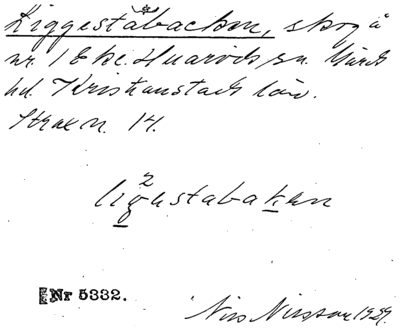 Liggestabacken, skog å
nr. 1 Eke. Huaröds sn. Gärds
hd. Kristianstads län.
Strax n. 14.
ligestabaken
Nr 5332.
Nils Nilsson 1929.